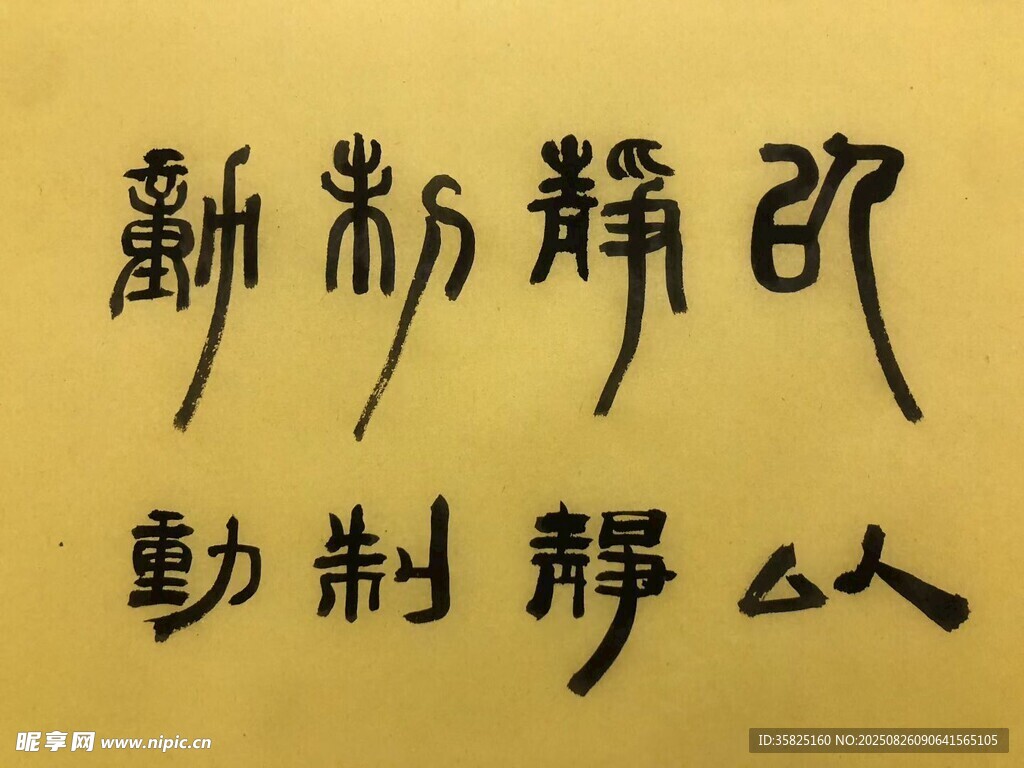 以静制動
以静制動
昵享网 www.nipic.cn
ID:35825160 NO:20250826090641565105